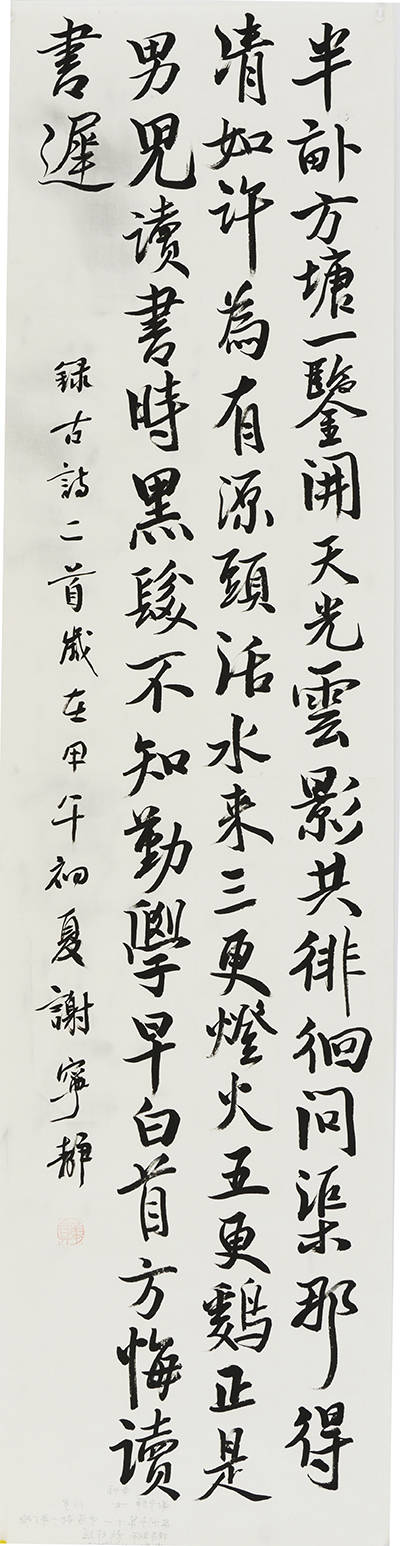 半畝方塘一鑒開天光雲影共徘徊問渠那得
清如許為有源頭活水来三更燈火五更鷄正是
男兒讀書時黑髮不知勤學早白首方悔讀
書遲
録古詩二首歲在甲午初夏謝寧静